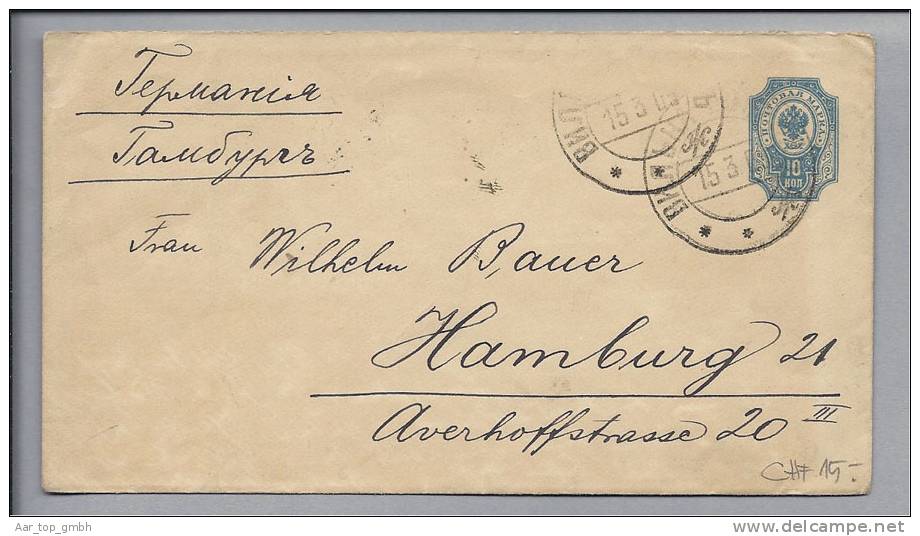 Германія
Гамбургъ
ВИЛ
15 3 03
Ь
ВИЛ
15 3
ПОЧТОВАЯ МАРКА
10
КОП
Frau Wilhelm Bauer
Hamburg 21
Averhoffstrasse 20 III
CHF 15.-
Aar_top_gmbh
www.delcampe.net